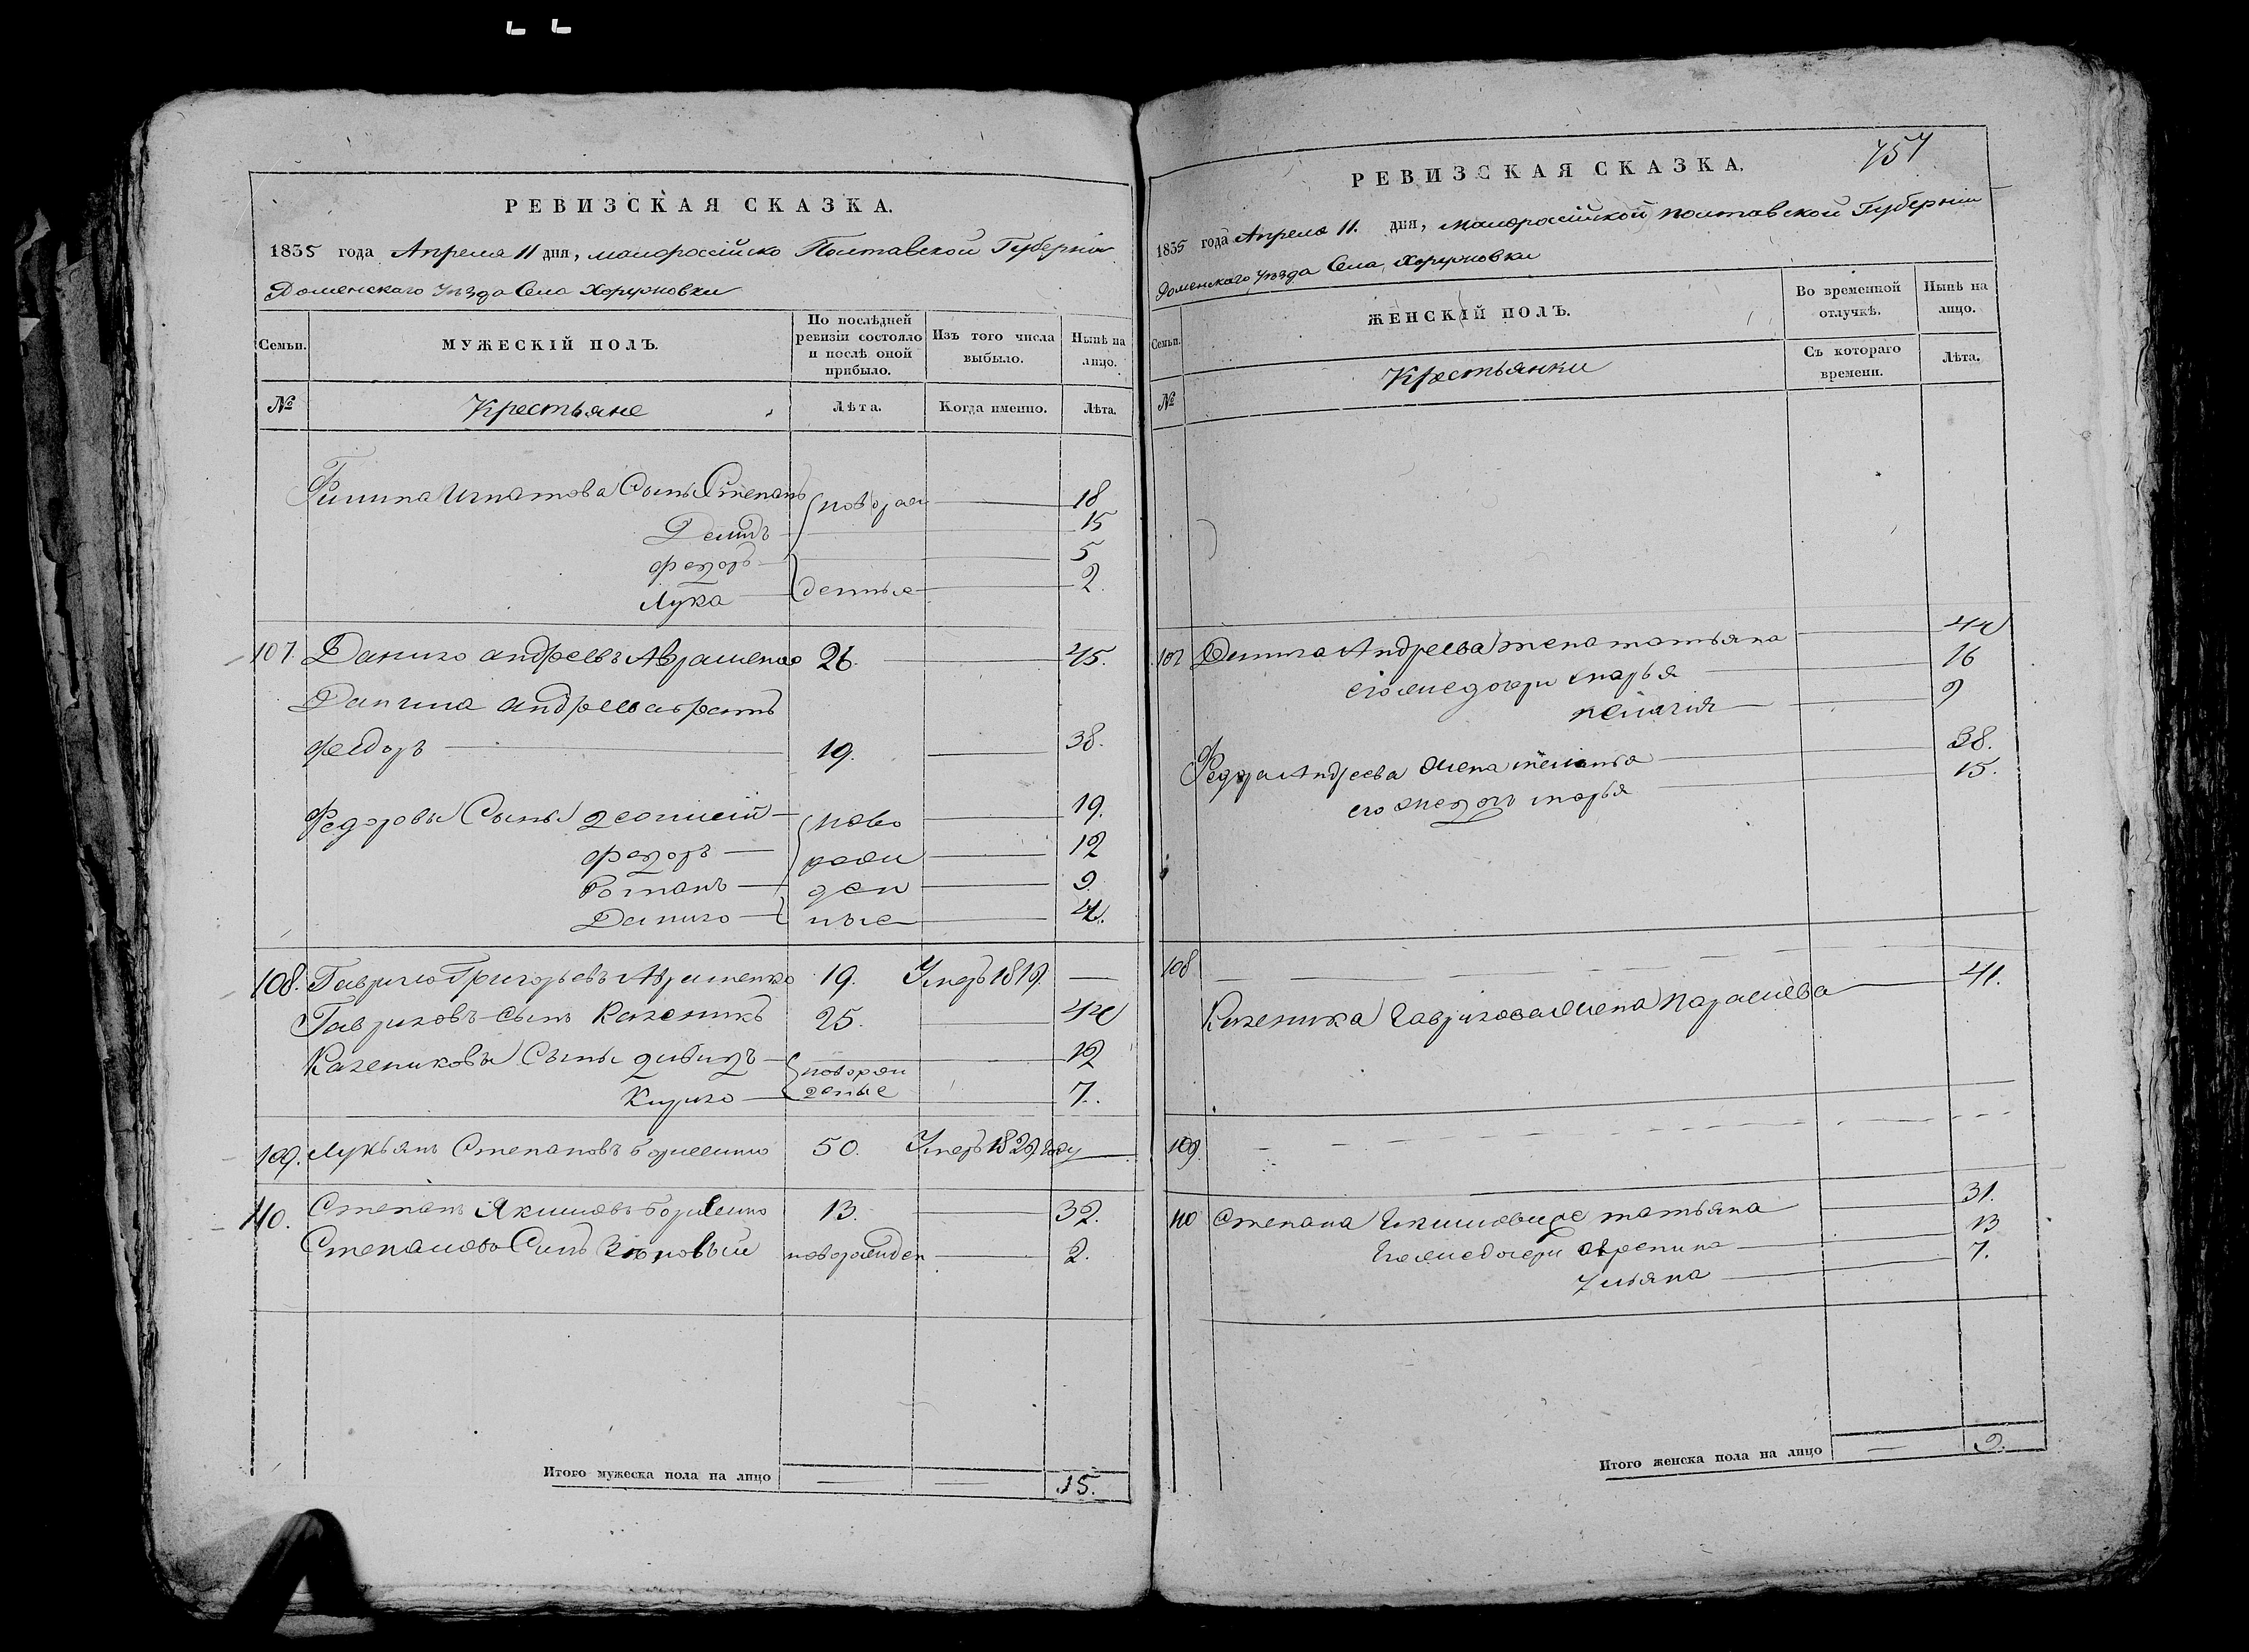 РЕВИЗСКАЯ СКАЗКА.
1835 года Апреля 11 дня, малоросійско Полтавской Губерніи
Роменскаго уѣзда Села Хоружовки
Семьи.
МУЖЕСКІЙ ПОЛЪ.
По послѣдней ревизіи состояло и послѣ оной прибыло.
Изъ того числа выбыло.
Нынѣ на лицо.
№
Крестьяне
Лѣта.
Когда именно.
Лѣта.
Филипа Игнатова Сынъ Степанъ новорож 18
Демидъ 15
Федоръ 5
Лука денные 2.
107. Данило Андреевъ Авраменко 26. 45.
Данила Андреева братъ
Федоръ 19. 38.
Федоровы Сыны Леонтій ново 19.
Федоръ рож 12
Романъ ден 9.
Данило ные 4.
108. Гаврило Григорьевъ Авраменко 19. Умеръ 1819. —
Гавриловъ сынъ Каленикъ 25. 44
Калениковы Сыны Давидъ новорож 12
Кирило денные 7.
109. Лукьянъ Степановъ 50. Умеръ 1829 году —
110. Степанъ Якимовъ 13. 32.
Степановъ Синъ Зѣновый новорожден 2.
Итого мужеска пола на лицо — — 15.
РЕВИЗСКАЯ СКАЗКА.
757
1835 года Апреля 11. дня, малоросійской Полтавской Губерніи
Роменскаго уѣзда Села Хоружовки
Семьи.
ЖЕНСКІЙ ПОЛЪ.
Во временной отлучкѣ.
Нынѣ на лицо.
№
Крестьянки
Съ котораго времени.
Лѣта.
107 Данила Андреева жена татьяна 44
его же дочери марья 16
пелагия 9
Федора Андреева жена 38.
его же дочь марья 15.
108
Каленика Гаврилова жена Параскева 41.
109.
110 Степана Якимова татьяна 31.
Его же дочери 13
Ульяна 7.
Итого женска пола на лицо — 9.